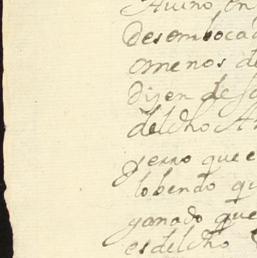 Avino, en
Desemboca
omenos de
dizen de
del dho A
yerro que e
lo bendo q
ganado que
es del dho